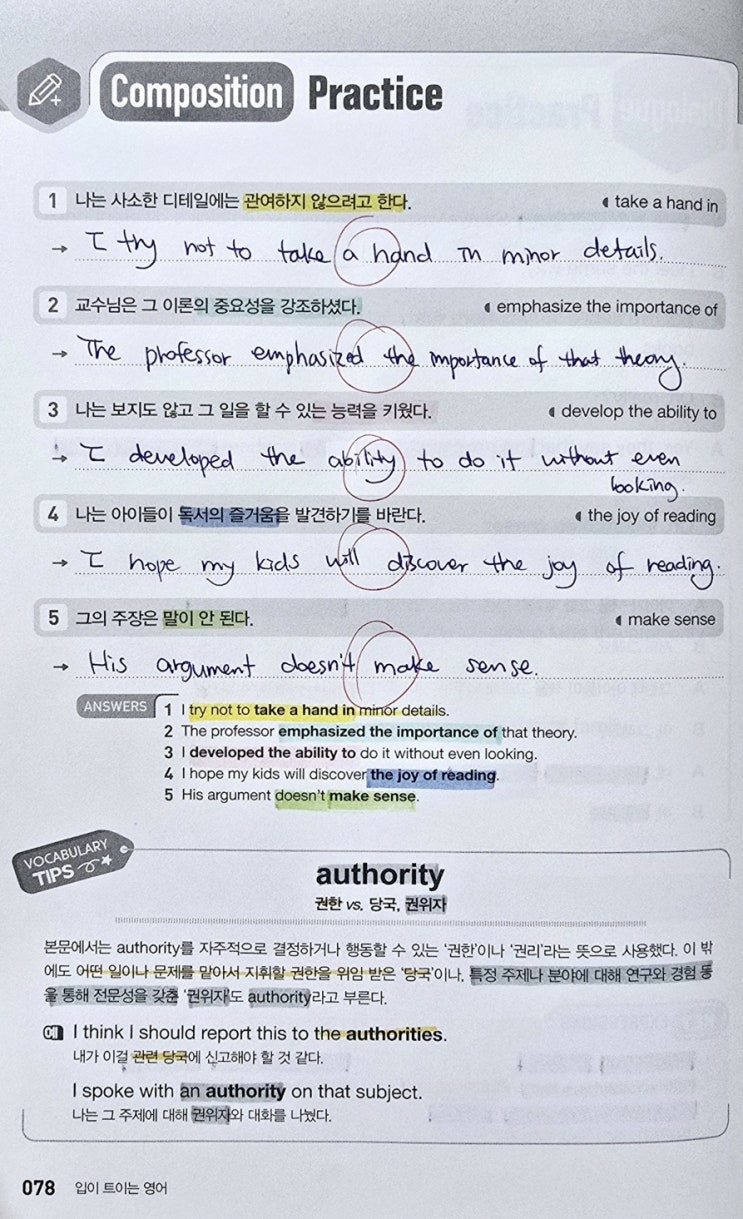 Composition Practice
1 나는 사소한 디테일에는 관여하지 않으려고 한다. take a hand in
→ I try not to take a hand in minor details.
2 교수님은 그 이론의 중요성을 강조하셨다. emphasize the importance of
→ The professor emphasized the importance of that theory.
3 나는 보지도 않고 그 일을 할 수 있는 능력을 키웠다. develop the ability to
→ I developed the ability to do it without even
looking.
4 나는 아이들이 독서의 즐거움을 발견하기를 바란다. the joy of reading
→ I hope my kids will discover the joy of reading.
5 그의 주장은 말이 안 된다. make sense
→ His argument doesn't make sense.
ANSWERS 1 I try not to take a hand in minor details.
2 The professor emphasized the importance of that theory.
3 I developed the ability to do it without even looking.
4 I hope my kids will discover the joy of reading.
5 His argument doesn't make sense.
VOCABULARY
TIPS
authority
권한 vs. 당국, 권위자
본문에서는 authority를 자주적으로 결정하거나 행동할 수 있는 '권한'이나 '권리'라는 뜻으로 사용했다. 이 밖
에도 어떤 일이나 문제를 맡아서 지휘할 권한을 위임 받은 '당국'이나, 특정 주제나 분야에 대해 연구와 경험 등
을 통해 전문성을 갖춘 '권위자'도 authority라고 부른다.
예 I think I should report this to the authorities.
내가 이걸 관련 당국에 신고해야 할 것 같다.
I spoke with an authority on that subject.
나는 그 주제에 대해 권위자와 대화를 나눴다.
078 입이 트이는 영어